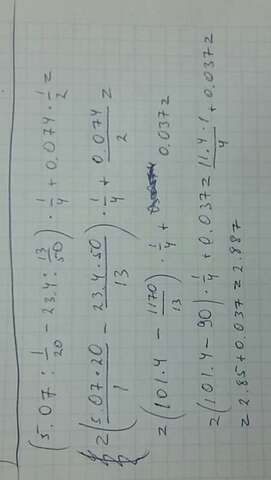 (5.07 : 1/20 - 23.4 : 13/50) · 1/4 + 0.074 · 1/2 =
= (5.07·20/1 - 23.4·50/13) · 1/4 + 0.074/2 =
= (101.4 - 1170/13) · 1/4 + 0.037 =
= (101.4 - 90) · 1/4 + 0.037 = 11.4·1/4 + 0.037 =
= 2.85 + 0.037 = 2.887